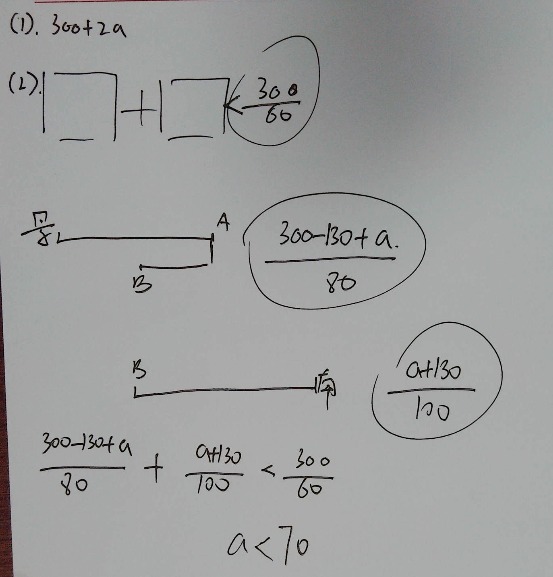 (1). 300+2a
(2). □ + □ < 300/60
西 A
B
300-130+a. / 80
B 南
a+130 / 100
300-130+a / 80 + a+130 / 100 < 300/60
a<70